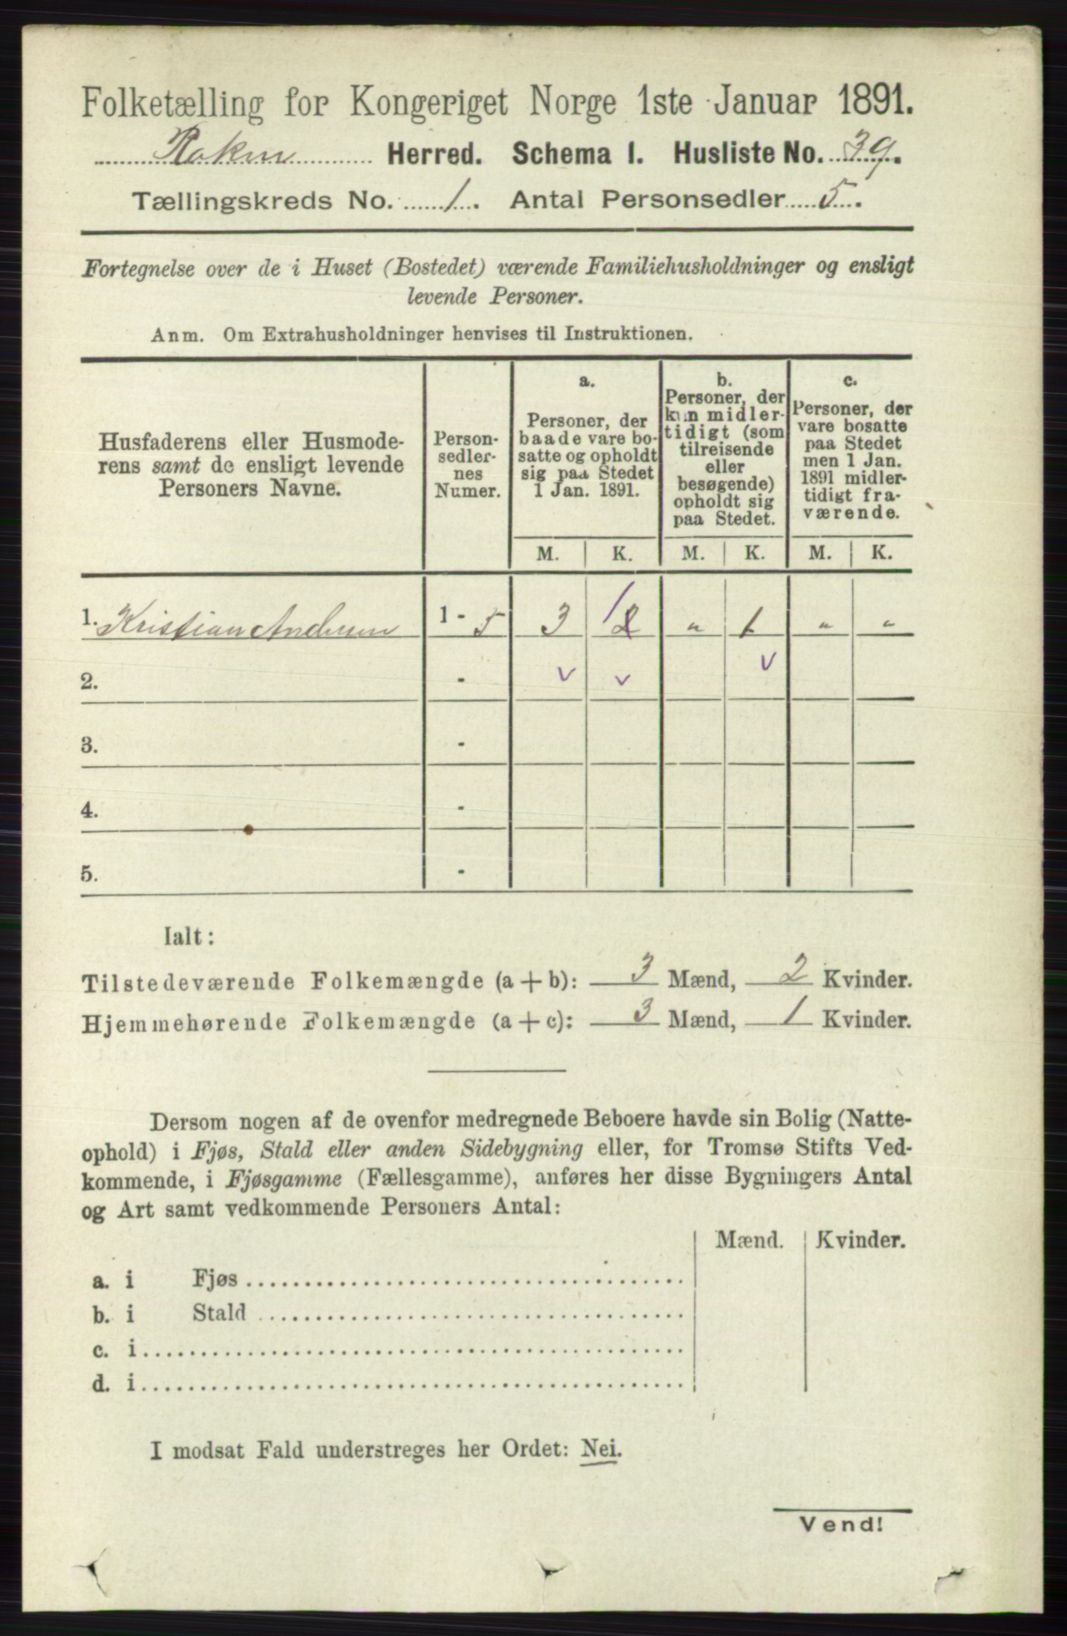 Folketælling for Kongeriget Norge 1ste Januar 1891.
Røken Herred. Schema I. Husliste No. 39.
Tællingskreds No. 1. Antal Personsedler 5.
Fortegnelse over de i Huset (Bostedet) værende Familiehusholdninger og ensligt
levende Personer.
Anm. Om Extrahusholdninger henvises til Instruktionen.
Husfaderens eller Husmode-
rens samt de ensligt levende
Personers Navne.
Person-
sedler-
nes
Numer.
a.
Personer, der
baade vare bo-
satte og opholdt
sig paa Stedet
1 Jan. 1891.
b.
Personer, der
kun midler-
tidigt (som
tilreisende
eller
besøgende)
opholdt sig
paa Stedet.
c.
Personer, der
vare bosatte
paa Stedet
men 1 Jan.
1891 midler-
tidigt fra-
værende.
M. K. M. K. M. K.
1. Kristian Andersen 1 - 5 3 1 2 " 1 " "
2. - v v v
3. -
4. -
5. -
Ialt:
Tilstedeværende Folkemængde (a + b): 3 Mænd, 2 Kvinder.
Hjemmehørende Folkemængde (a + c): 3 Mænd, 1 Kvinder.
Dersom nogen af de ovenfor medregnede Beboere havde sin Bolig (Natte-
ophold) i Fjøs, Stald eller anden Sidebygning eller, for Tromsø Stifts Ved-
kommende, i Fjøsgamme (Fællesgamme), anføres her disse Bygningers Antal
og Art samt vedkommende Personers Antal:
Mænd. Kvinder.
a. i Fjøs
b. i Stald
c. i
d. i
I modsat Fald understreges her Ordet: Nei.
Vend!